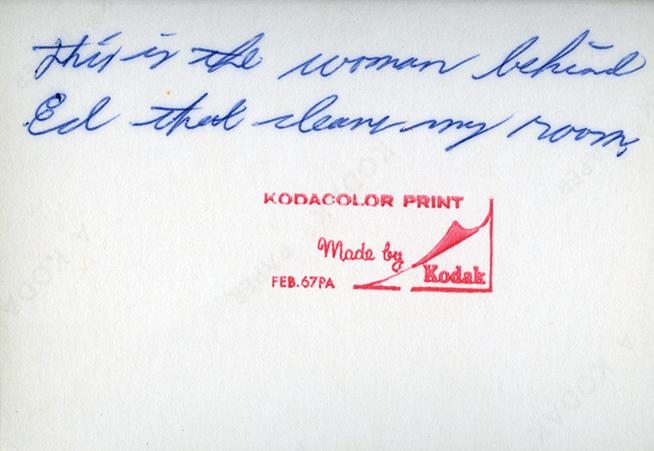 This is the woman behind
Ed that cleans my room.
KODACOLOR PRINT
Made by
Kodak
FEB.67PA
A KODAK
PAPER
KODAK
PAPER
A KODAK